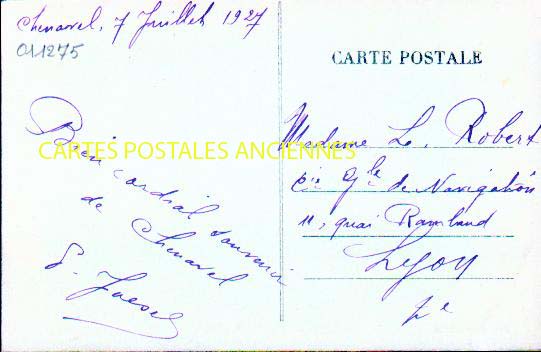 Chenavel, 7 Juillet 1927
011275
CARTE POSTALE
Bien cordial souvenir
de Chenavel
CARTES POSTALES ANCIENNES
Madame L. Robert
Cie Gle de Navigation
11, quai Rambaud
Lyon